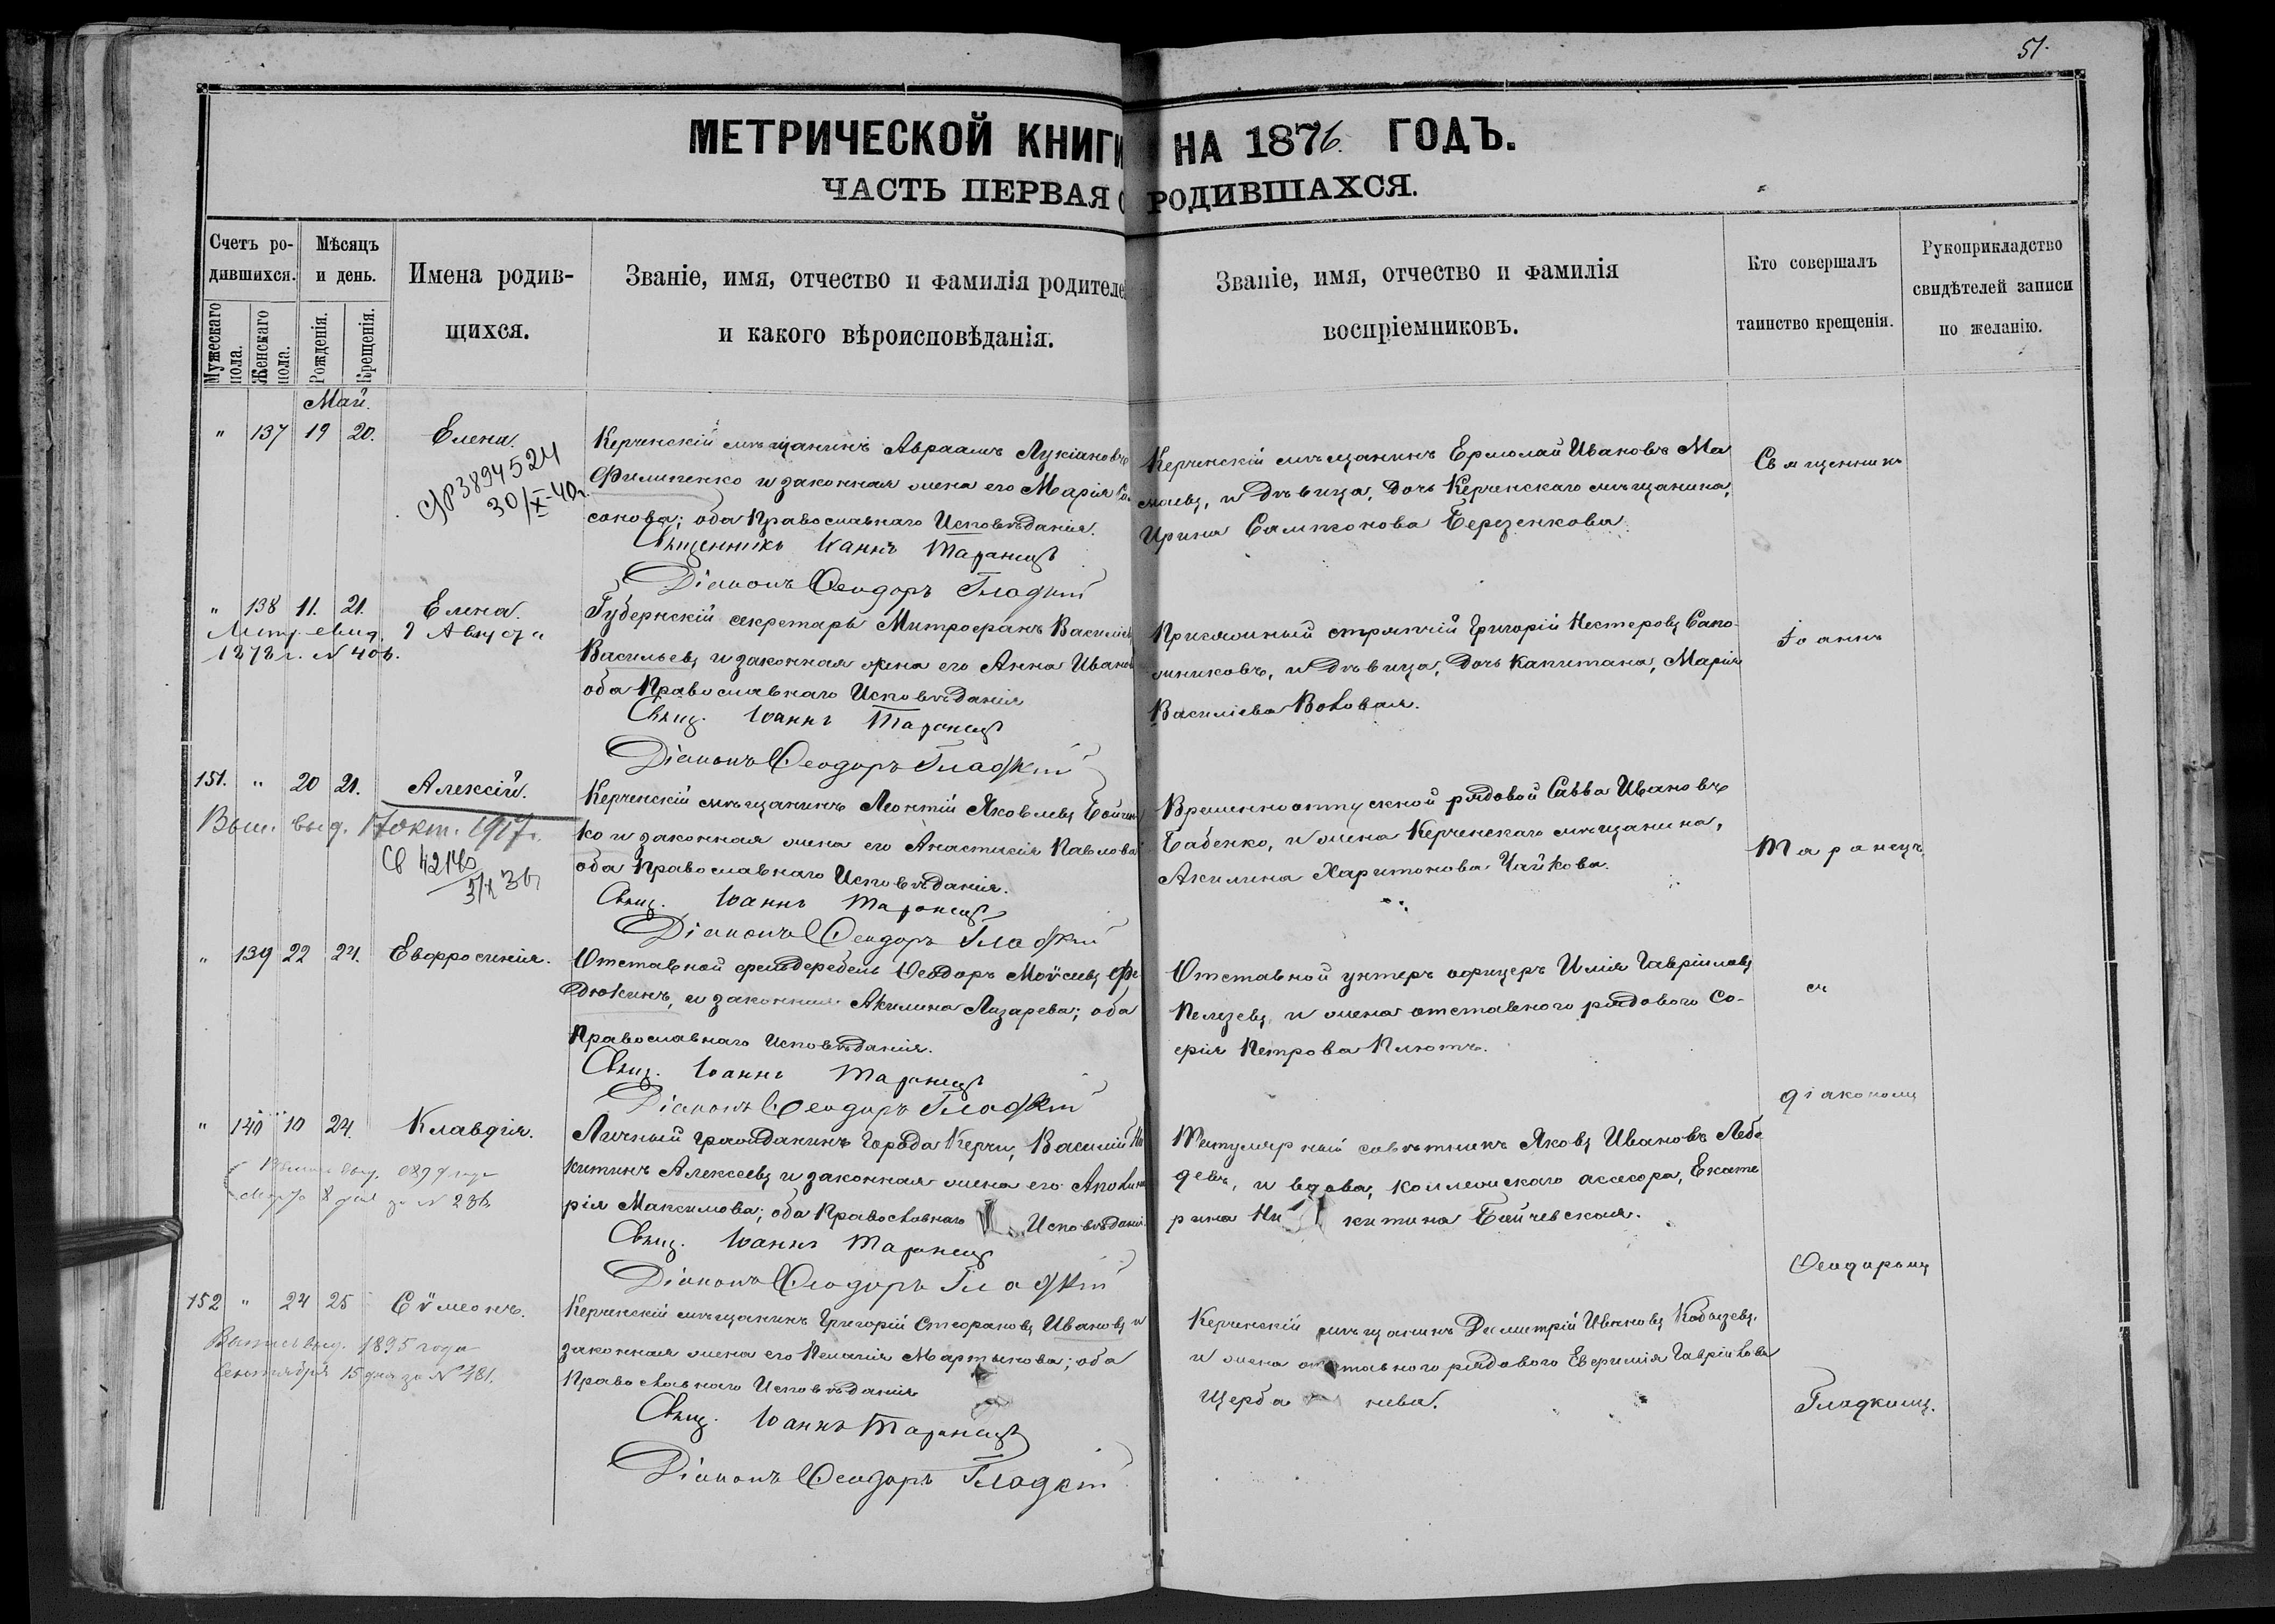 51.
МЕТРИЧЕСКОЙ КНИГИ НА 1876. ГОДЪ.
ЧАСТЬ ПЕРВАЯ О РОДИВШАХСЯ.
Счетъ ро-
дившихся.
Мужескаго
пола.
Женскаго
пола.
Мѣсяцъ
и день.
Рожденія.
Крещенія.
Имена родив-
щихся.
Званіе, имя, отчество и фамилія родителе
и какого вѣроисповѣданія.
Званіе, имя, отчество и фамилія
воспріемниковъ.
Кто совершалъ
таинство крещенія.
Рукоприкладство
свидѣтелей записи
по желанію.
Май.
" 137 19 20. Елена.
3894524
30/X-40г.
Керченскій мѣщанинъ Авраамъ Лукіановъ
Филипенко и законная жена его Марія Сам
сонова; оба Православнаго Исповѣданія.
Священникъ Іоаннъ Таранецъ
Діаконъ Ѳеодоръ Гладкій
Керченскій мѣщанинъ Ермолай Ивановъ
и дѣвица, дочь Керченскаго мѣщанина,
Ирина Сампсонова Березенкова.
Священникъ
" 138 11. 21. Елена.
Метр. свид. 9 Августа
1878 г. N 406.
Губернскій секретарь Митрофанъ Василіев
Васильевъ и законная жена его Анна Иванов
оба Православнаго Исповѣданія
Свящ. Іоаннъ Таранецъ
Діаконъ Ѳеодоръ Гладкій
Присяжный стряпчій Григорій Нестеровъ Сапо-
жниковъ, и дѣвица, дочь Капитана, Марія
Василіева
Іоаннъ
151. " 20 21. Алексій.
Вып. выд. 17 окт. 1917г.
Керченскій мѣщанинъ Леонтій Яковлевъ Бойчен
ко и законная жена его Анастасія Павлова
оба Православнаго Исповѣданія.
Свящ. Іоаннъ Таранецъ
Діаконъ Ѳеодоръ Гладкій
Временноотпускной рядовой Савва Ивановъ
Бабенко, и жена Керченскаго мѣщанина,
Акилина Харитонова Чайкова.
Таранецъ
" 139 22 24. Евфросинія.
Отставной фельдфебель Ѳеодоръ Моѵсеевъ Фе
дюкинъ, и законная Акилина Лазарева; оба
Православнаго Исповѣданія.
Свящ. Іоаннъ Таранецъ
Діаконъ Ѳеодоръ Гладкій
Отставной унтеръ офицеръ Илія Гавріиловъ
и жена отставного рядового Со-
фія Петрова
съ
діакономъ
" 140 10 24. Клавдія.
Выпись выд. 1899 года
Марта 8 дня за N 236
Личный гражданинъ города Керчи, Василій Ни
китинъ Алексеевъ и законная жена его Аполина
рія Максимова; оба Православнаго Исповѣданія
Свящ. Іоаннъ Таранецъ
Діаконъ Ѳеодоръ Гладкій
Титулярный совѣтникъ Яковъ Ивановъ Лебе
девъ, и вдова, коллежскаго асесора, Екате
рина Ни китина Байчевская.
Ѳеодоромъ
152 " 24 25 Сѵмеонъ.
Выпись выд. 1895 года
Сентября 15 дня за N 481.
Керченскій мѣщанинъ Григорій Стефановъ Ивановъ и
законная жена его Пелагія Мартынова; оба
Православнаго Исповѣданія
Свящ. Іоаннъ Таранецъ
Діаконъ Ѳеодоръ Гладкій
Керченскій мѣщанинъ Димитрій Ивановъ Кобызевъ,
и жена отставного рядового Евфимія Гавріилова
Щерба кова.
Гладкимъ.